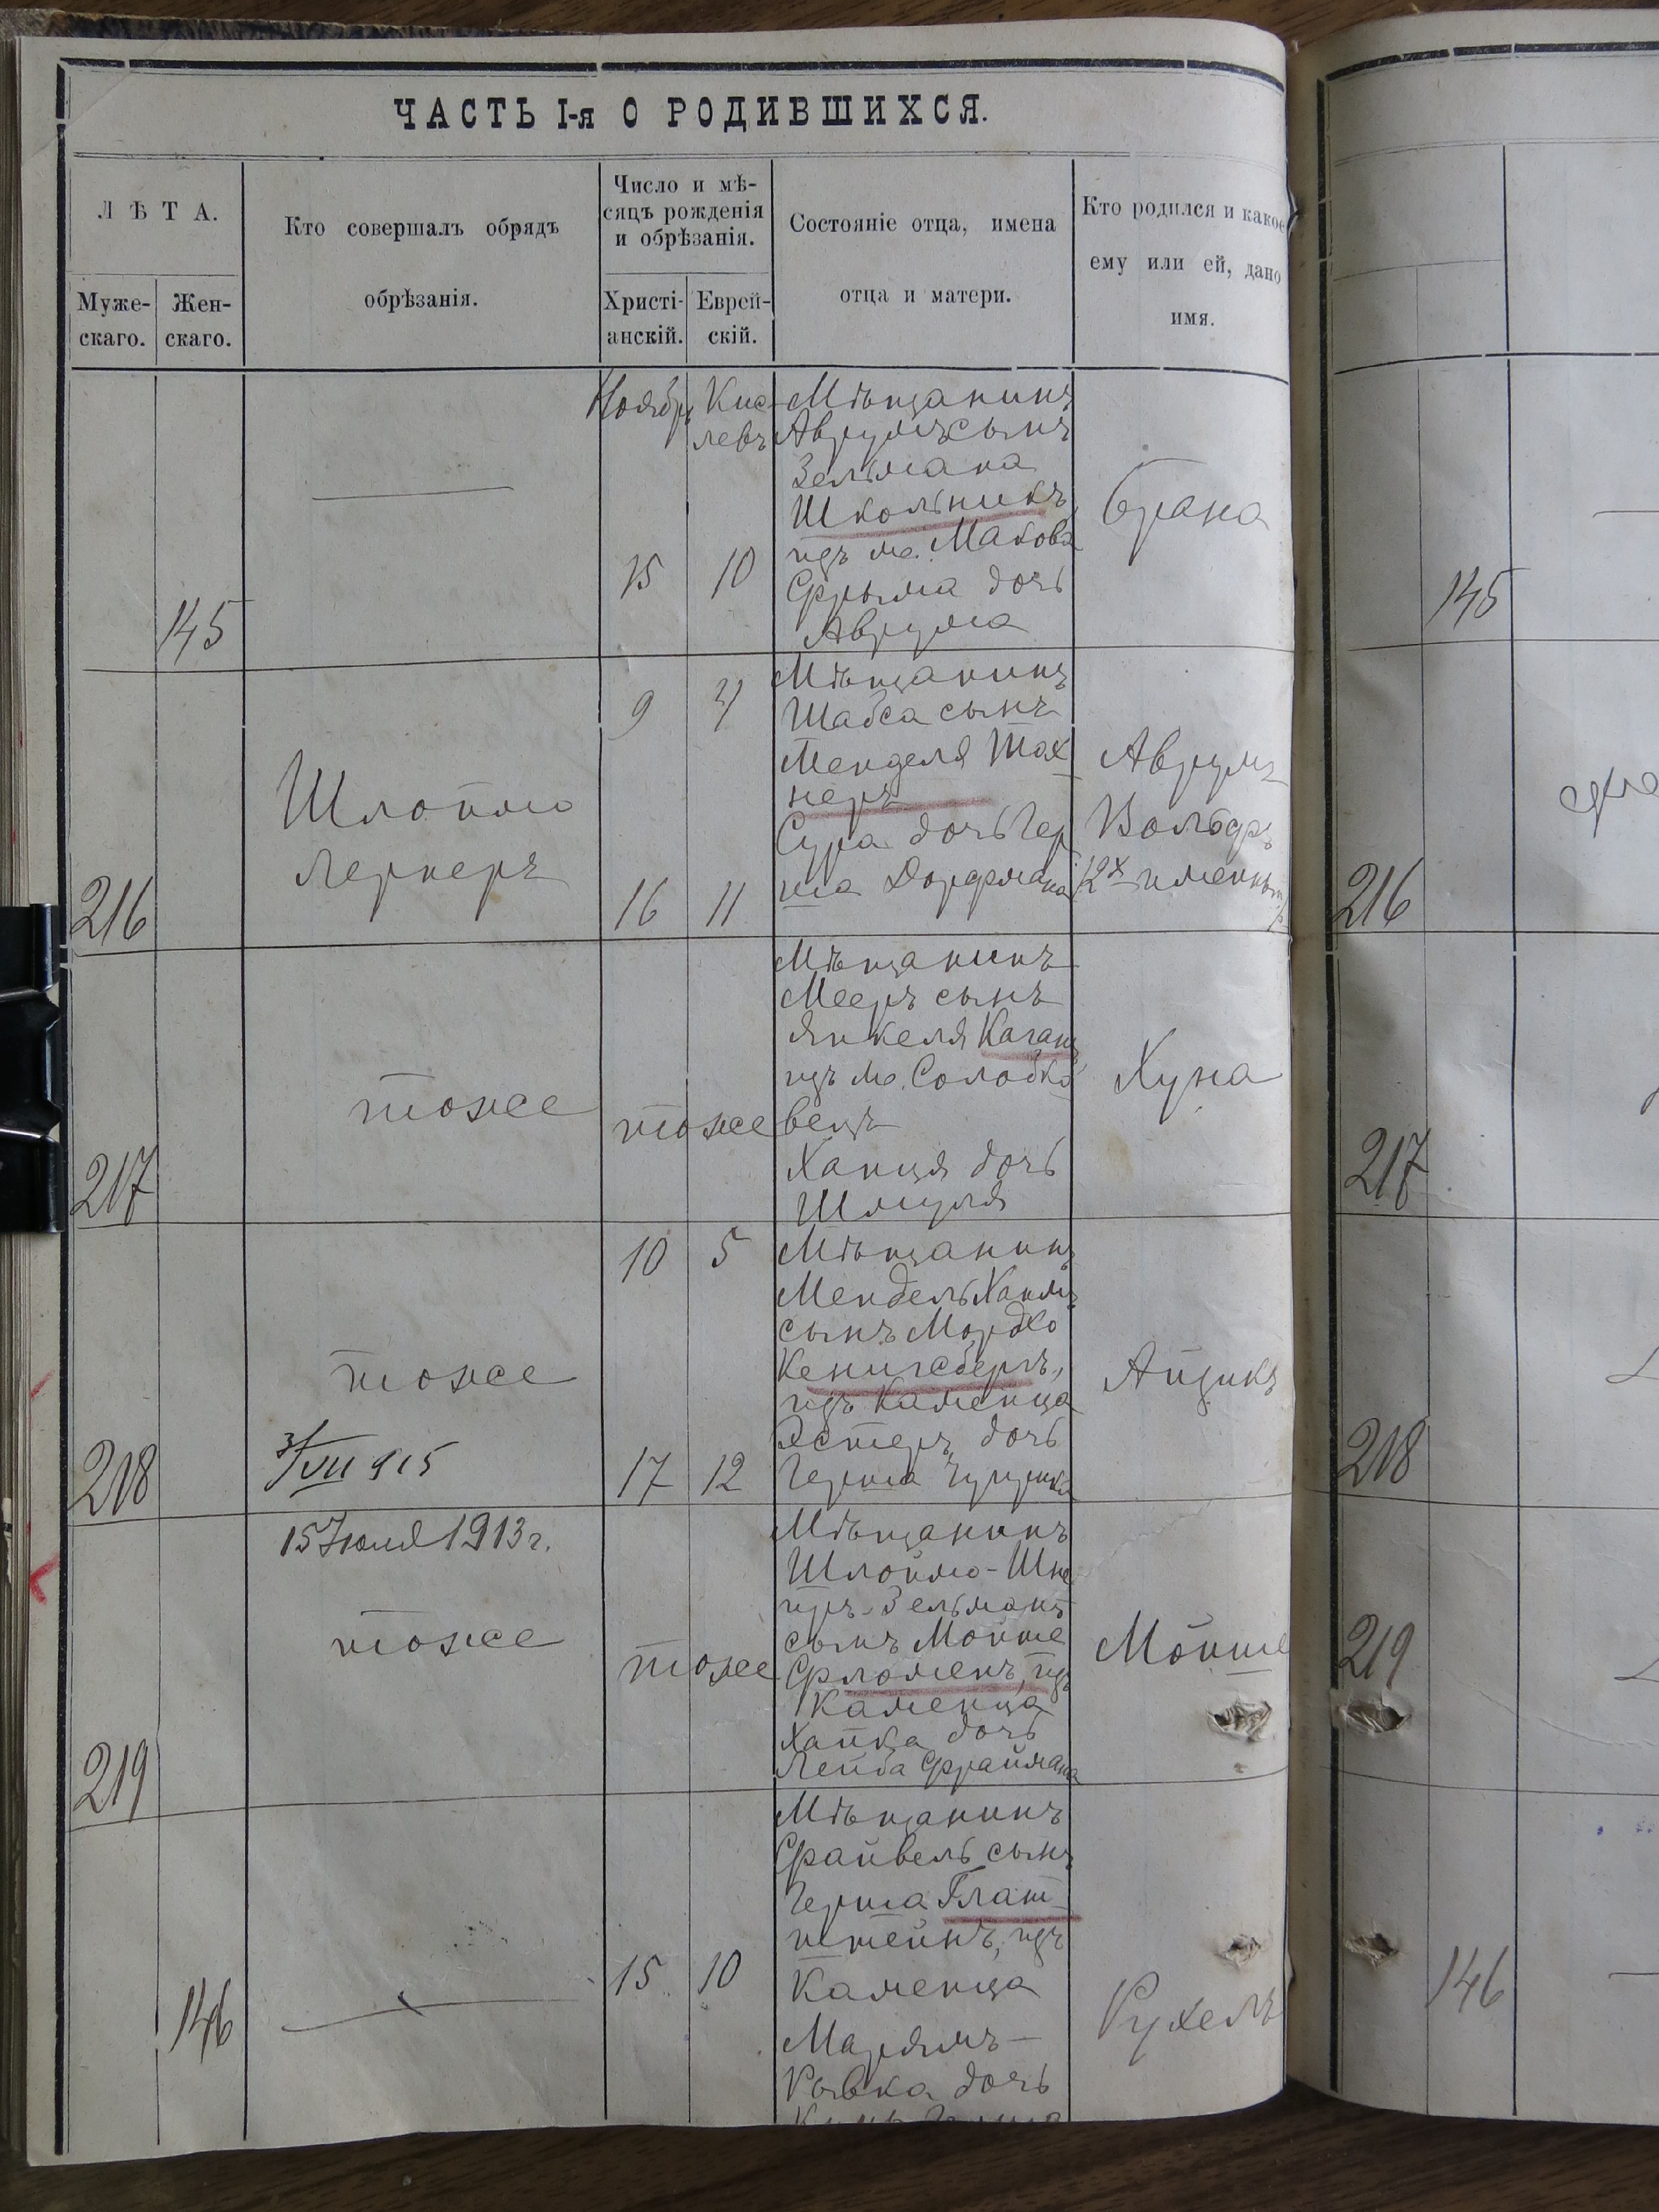 ЧАСТЬ I-я О РОДИВШИХСЯ.
ЛѢТА.
Муже-
скаго.
Жен-
скаго.
Кто совершалъ обрядъ
обрѣзанія.
Число и мѣ-
сяцъ рожденія
и обрѣзанія.
Христі-
анскій.
Еврей-
скій.
Состояніе отца, имена
отца и матери.
Кто родился и какое
ему или ей, дано
имя.
145
Ноябрь
15
Кис-
левъ
10
Мѣщанинъ
Аврумъ сынъ
Зельмана
Школьникъ
изъ м. Макова
Фрыма дочь
Аврума
Брана
145
216
Шлоймо
Лернеръ
9
16
4
11
Мѣщанинъ
Шабса сынъ
Менделя Тох-
неръ
Сура дочь Гер
ша Дорфмана
Аврумъ
Вольфъ
/2х именный/
216
217
тоже
тоже
Мѣщанинъ
Мееръ сынъ
Янкеля Каганъ
изъ м. Солобко
вецъ
Ханця дочь
Шмуля
Хуна
217
218
тоже
3/VII 915
10
17
5
12
Мѣщанинъ
Мендель Хаимъ
сынъ Мордко
Кенигсбергъ,
изъ Каменца
Эстеръ дочь
Герша
Айзикъ
218
219
15 Июля 1913 г.
тоже
тоже
Мѣщанинъ
Шлоймо-Шне
иръ-Зельманъ
сынъ Мойше
Фломенъ, изъ
Каменца
Хайка дочь
Лейба Фраймана
Мойше
219
146
15
10
Мѣщанинъ
Файвель сынъ
Герша Глат-
штейнъ, изъ
Каменца
Марьямъ-
Рывка дочь
Рухель
146